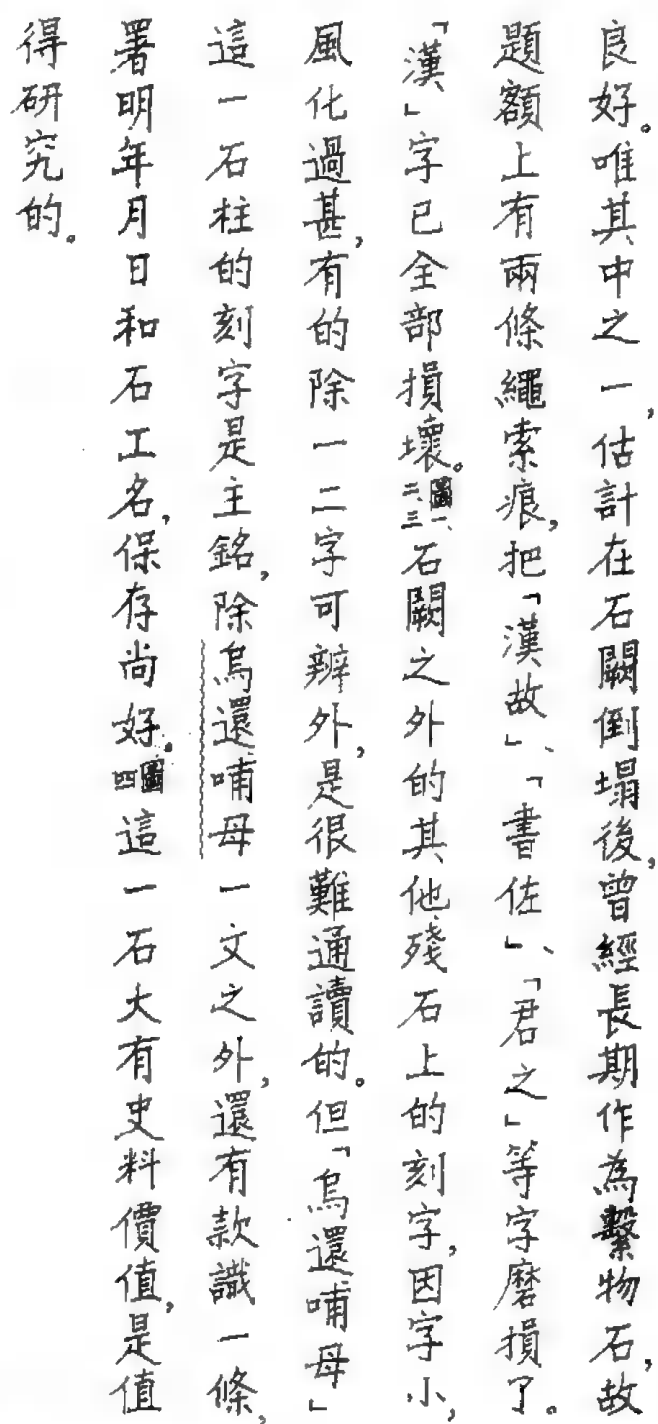 良好。唯其中之一,估計在石闕倒塌後,曾經長期作為繫物石,故
題額上有兩條繩索痕,把「漢故」、「書佐」、「君之」等字磨損了。
「漢」字已全部損壞。圖一、二、三石闕之外的其他殘石上的刻字,因字小,
風化過甚,有的除一二字可辨外,是很難通讀的。但「烏還哺母」
這一石柱的刻字是主銘,除烏還哺母一文之外,還有款識一條,
署明年月日和石工名,保存尚好。圖四這一石大有史料價值,是值
得研究的。